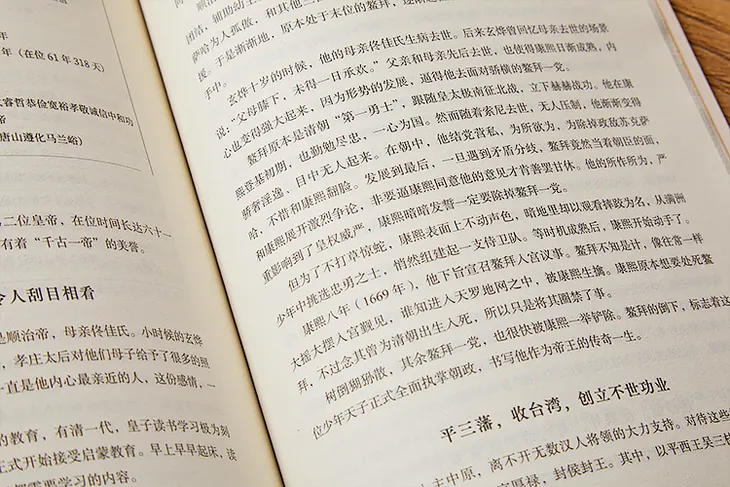 年
年（在位 61 年 318 天）
大睿哲恭俭宽裕孝敬诚信中和功
帝
唐山遵化马兰峪）
二位皇帝，在位时间长达六十一
有着“千古一帝”的美誉。
令人刮目相看
是顺治帝，母亲佟佳氏。小时候的玄烨
，孝庄太后对他们母子给予了很多的照
一直是他内心最亲近的人，这份感情，一
的教育，有清一代，皇子读书学习极为刻
正式开始接受启蒙教育。早上早早起床，读
都需要学习的内容。
团结，辅助幼主
萨哈为人孤傲，和其他三
援。于是渐渐地，原本处于末位的鳌拜，逐渐
手中。
玄烨十岁的时候，他的母亲佟佳氏生病去世。后来玄烨曾回忆母亲去世的场景
说：“父母膝下，未得一日承欢。”父亲和母亲先后去世，也使得康熙日渐成熟，内
心也变得强大起来，因为形势的发展，逼得他去面对骄横的鳌拜一党。
鳌拜原本是清朝“第一勇士”，跟随皇太极南征北战，立下赫赫战功。他在康
熙登基初期，也勤勉尽忠，一心为国。然而随着索尼去世，无人压制，他渐渐变得
骄奢淫逸、目中无人起来。在朝中，他结党营私，为所欲为，为除掉政敌苏克萨
哈，不惜和康熙翻脸。发展到最后，一旦遇到矛盾分歧，鳌拜竟然当着朝臣的面，
和康熙展开激烈争论，非要逼康熙同意他的意见才肯善罢甘休。他的所作所为，严
重影响到了皇权威严，康熙暗暗发誓一定要除掉鳌拜一党。
但为了不打草惊蛇，康熙表面上不动声色，暗地里却以观看摔跤为名，从满洲
少年中挑选忠勇之士，悄然组建起一支侍卫队。等时机成熟后，康熙开始动手了。
康熙八年（1669 年），他下旨宣召鳌拜入宫议事。鳌拜不知是计，像往常一样
大摇大摆入宫觐见，谁知进入天罗地网之中，被康熙生擒。康熙原本想要处死鳌
拜，不过念其曾为清朝出生入死，所以只是将其圈禁了事。
树倒猢狲散，其余鳌拜一党，也很快被康熙一举铲除。鳌拜的倒下，标志着这
位少年天子正式全面执掌朝政，书写他作为帝王的传奇一生。
平三藩，收台湾，创立不世功业
主中原，离不开无数汉人将领的大力支持。对待这些
厚禄，封侯封王。其中，以平西王吴三桂